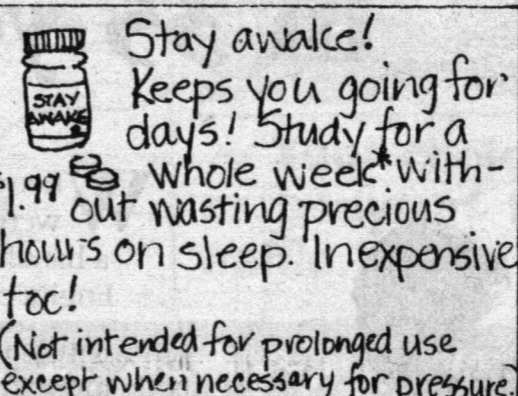 Stay awake!
Keeps you going for
days! Study for a
whole week* with-
out wasting precious
hours on sleep. Inexpensive
too!
(Not intended for prolonged use
except when necessary for pressure.)
STAY
AWAKE
$1.99